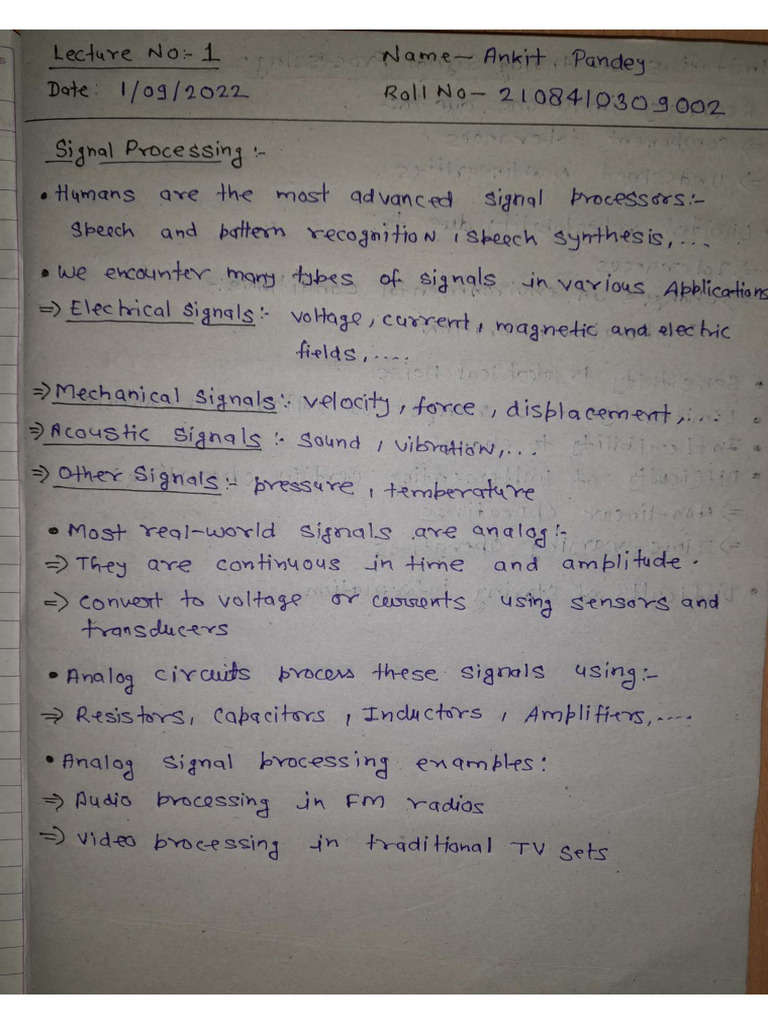 Lecture No:- 1 Name- Ankit Pandey
Date: 1/09/2022 Roll No- 2108410309002
Signal Processing:-
• Humans are the most advanced signal processors:-
speech and pattern recognition, speech synthesis,....
• We encounter many types of signals in various Applications
⇒ Electrical Signals:- voltage, current, magnetic and electric
fields,....
⇒ Mechanical Signals:- velocity, force, displacement,....
⇒ Acoustic Signals:- sound, vibration,...
⇒ Other Signals:- pressure, temperature
• Most real-world signals are analog:-
⇒ They are continuous in time and amplitude.
⇒ Convert to voltage or currents using sensors and
transducers
• Analog circuits process these signals using:-
⇒ Resistors, Capacitors, Inductors, Amplifiers,....
• Analog signal processing examples:
⇒ Audio processing in FM radios
⇒ Video processing in traditional TV sets